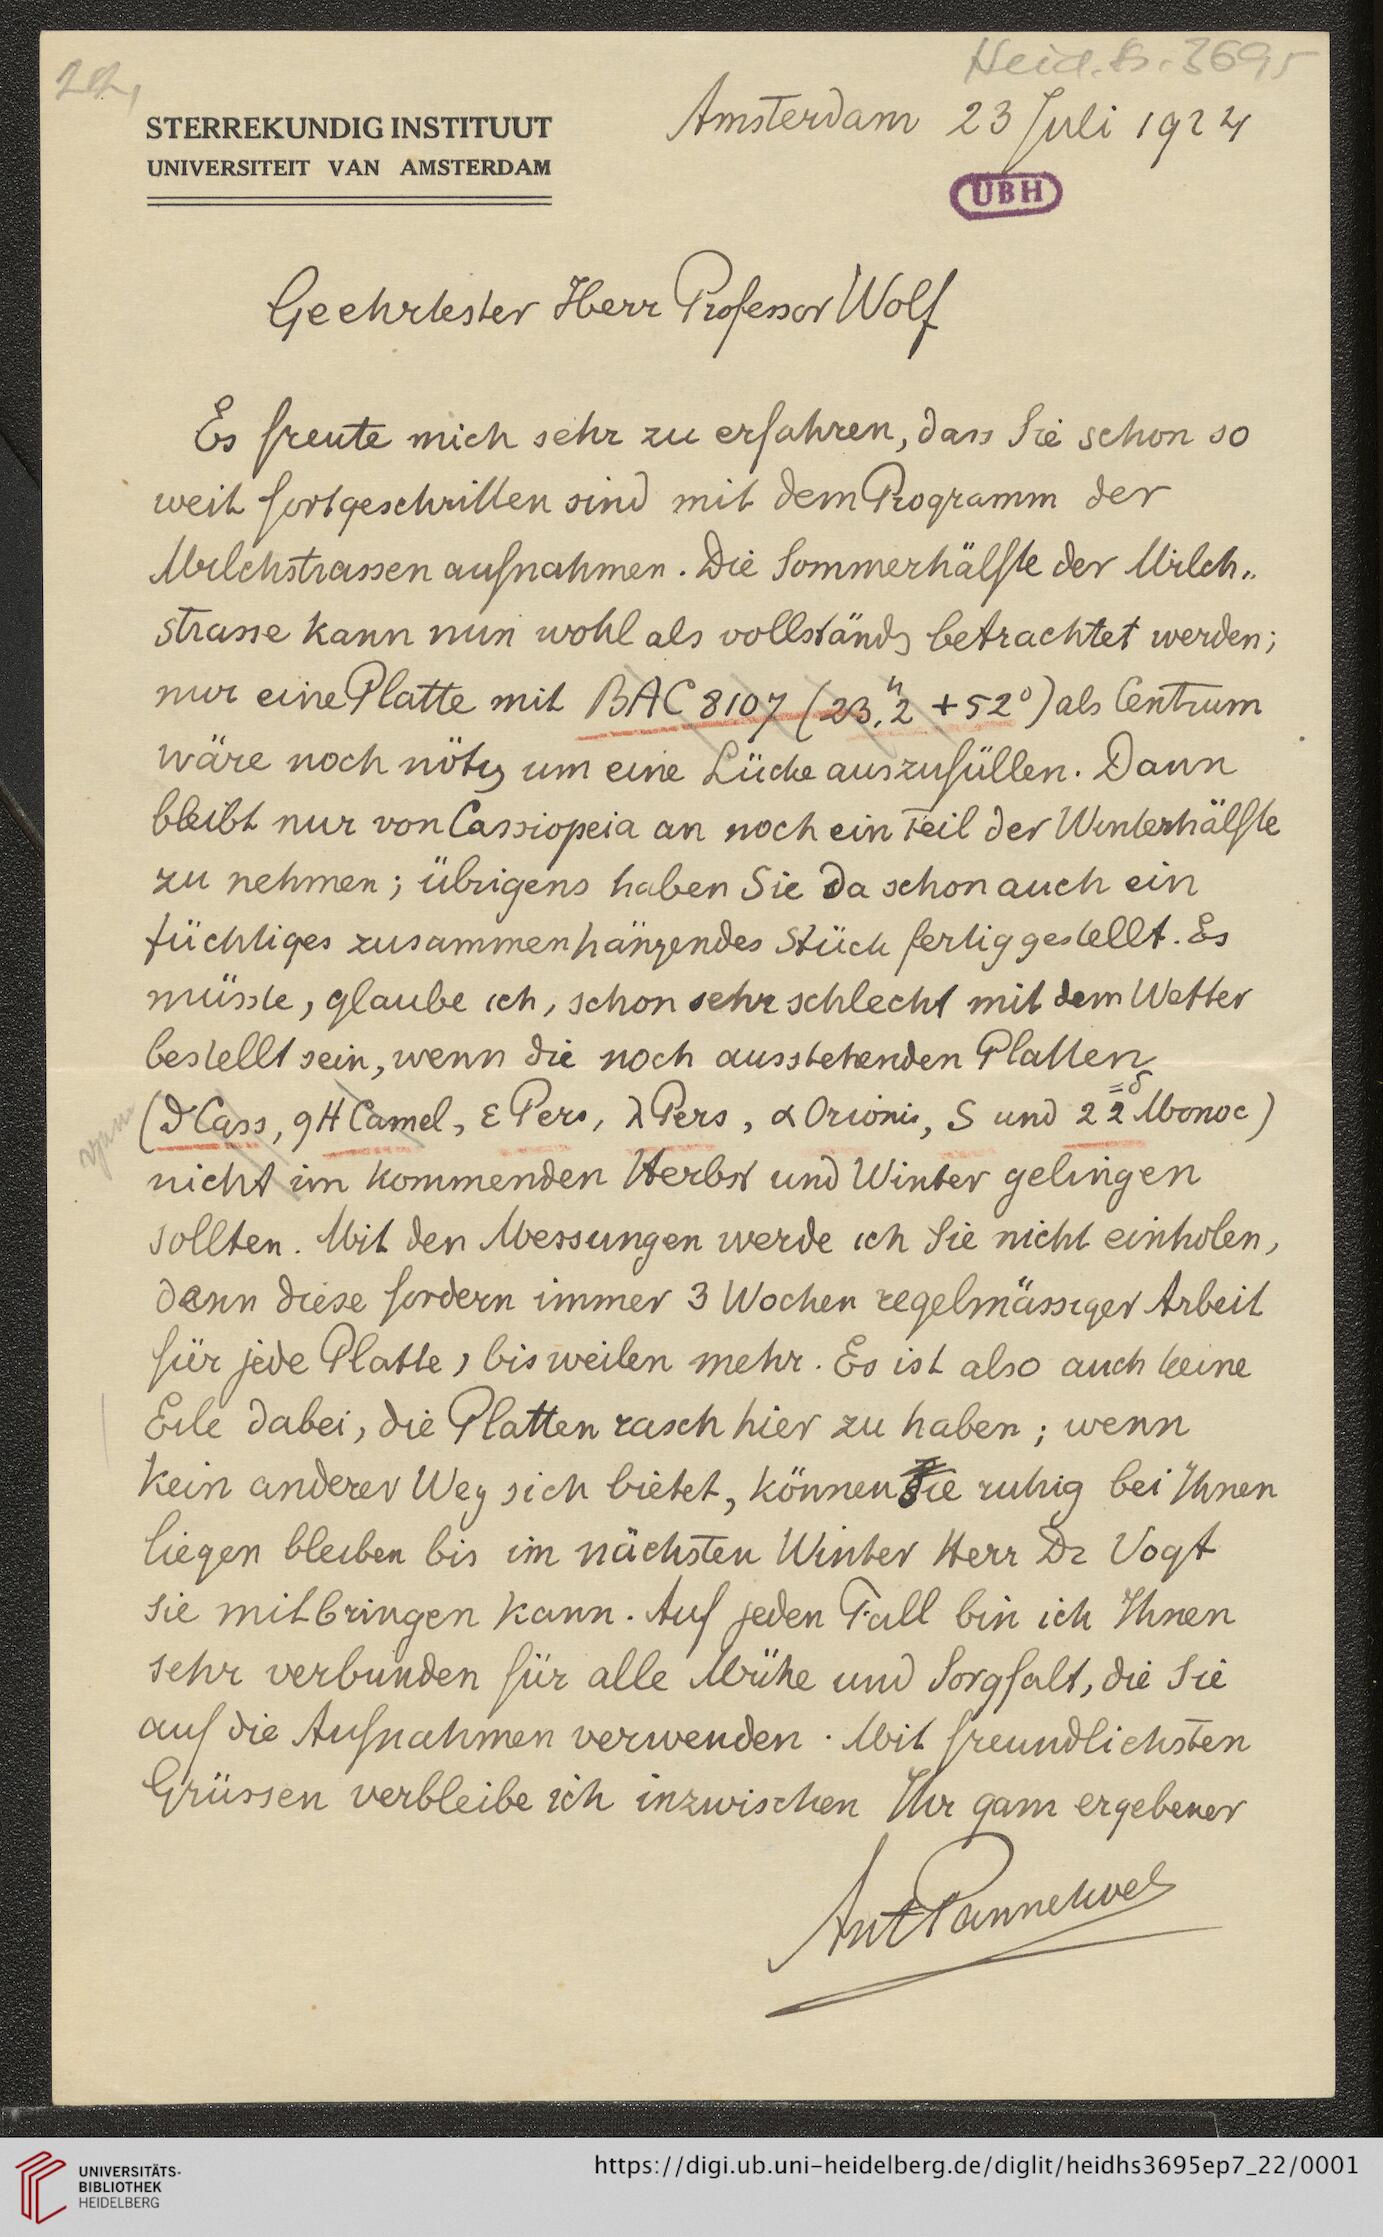 22,
Heid. Hs. 3695
STERREKUNDIG INSTITUUT
UNIVERSITEIT VAN AMSTERDAM
Amsterdam 23 Juli 1924
UBH
Geehrtester Herr Professor Wolf
Es freute mich sehr zu erfahren, dass Sie schon so
weit fortgeschritten sind mit dem Programm der
Milchstrassenaufnahmen. Die Sommerhälfte der Milch„
strasse kann nun wohl als vollständig betrachtet werden;
nur eine Platte mit BAC 8107 (23,ʰ2 +52°) als Centrum
wäre noch nötig um eine Lücke auszufüllen. Dann
bleibt nur von Cassiopeia an noch ein Teil der Winterhälfte
zu nehmen; übrigens haben Sie da schon auch ein
tüchtiges zusammenhängendes Stück fertiggestellt. Es
müsste, glaube ich, schon sehr schlecht mit dem Wetter
bestellt sein, wenn die noch ausstehenden Platten
(δ Cass, 9H Camel, ε Pers, λ Pers, α Orionis, S und 22 Monoc)
=δ
nicht im kommenden Herbst und Winter gelingen
sollten. Mit den Messungen werde ich Sie nicht einholen,
denn diese fordern immer 3 Wochen regelmässiger Arbeit
für jede Platte, bisweilen mehr. Es ist also auch keine
Eile dabei, die Platten rasch hier zu haben; wenn
kein anderer Weg sich bietet, können sie ruhig bei Ihnen
liegen bleiben bis im nächsten Winter Herr Dr Vogt
sie mitbringen kann. Auf jeden Fall bin ich Ihnen
sehr verbunden für alle Mühe und Sorgfalt, die Sie
auf die Aufnahmen verwenden. Mit freundlichsten
Grüssen verbleibe ich inzwischen Ihr ganz ergebener
Ant Pannekoek
UNIVERSITÄTS-
BIBLIOTHEK
HEIDELBERG
https://digi.ub.uni-heidelberg.de/diglit/heidhs3695ep7_22/0001